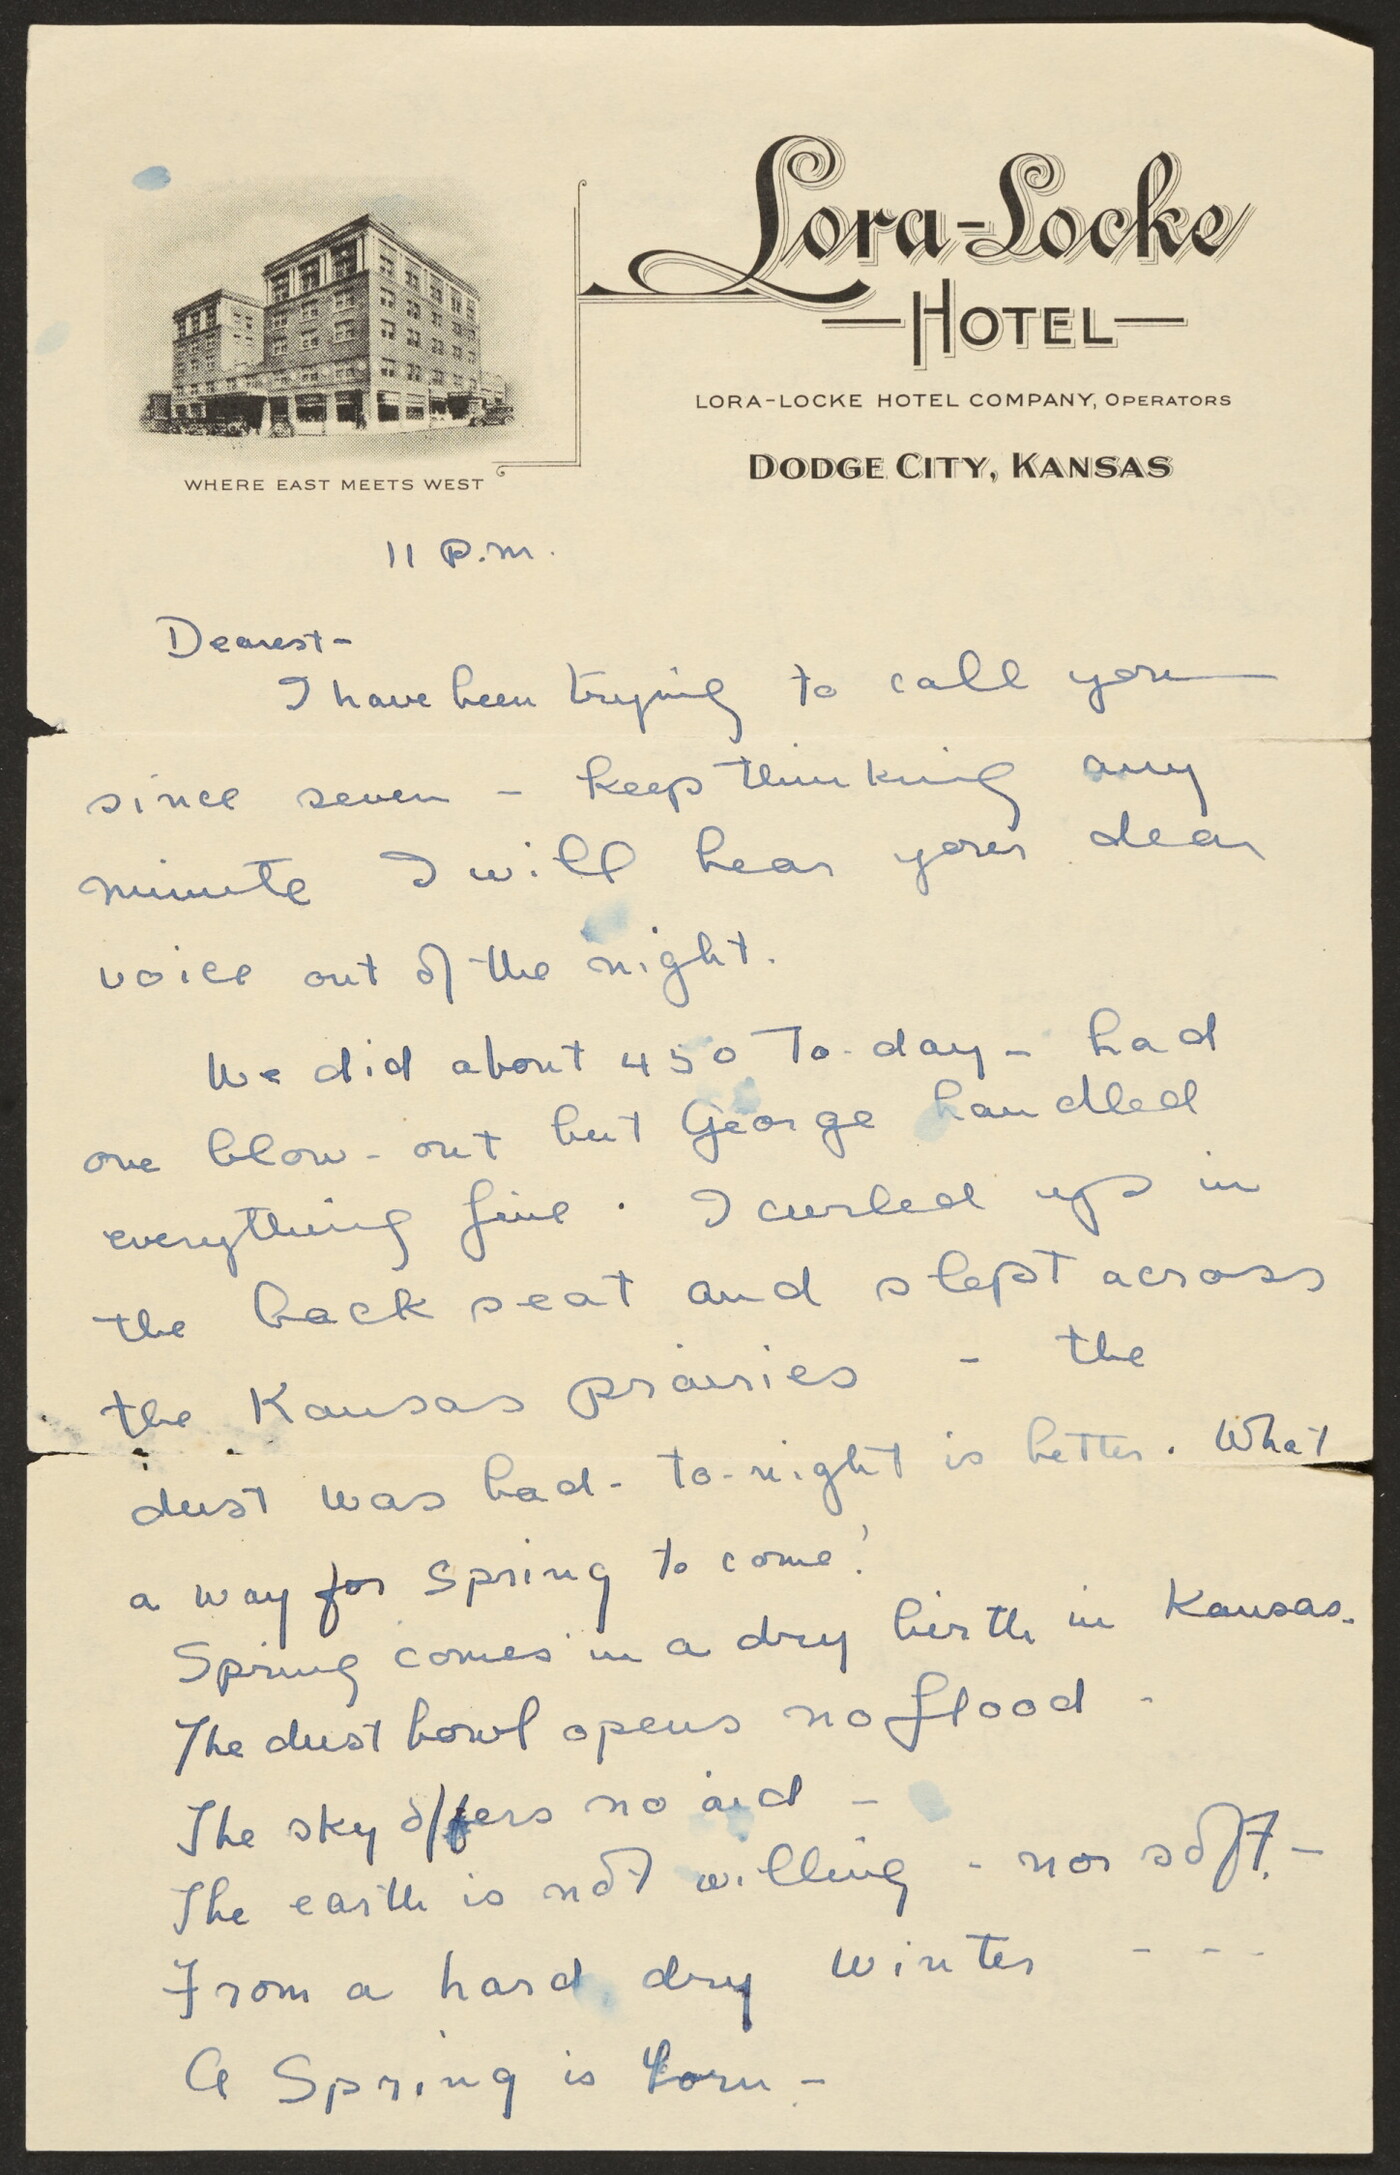 Lora-Locke
HOTEL
LORA-LOCKE HOTEL COMPANY, OPERATORS
DODGE CITY, KANSAS
WHERE EAST MEETS WEST
11 P.M.
Dearest-
I have been trying to call you
since seven - keep thinking any
minute I will hear your dear
voice out of the night.
We did about 450 To-day - had
one blow-out but George handled
everything fine. I curled up in
the back seat and slept across
the Kansas prairies - the
dust was bad - to-night is better. What
a way for Spring to come!
Spring comes in a dry birth in Kansas.
The dust bowl opens no flood -
The sky offers no aid -
The earth is not willing - nor soft. -
From a hard, dry winter - - -
A Spring is born -